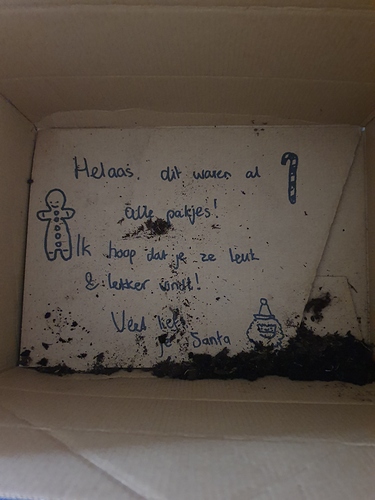 Helaas, dit waren al
alle pakjes!
Ik hoop dat je ze leuk
& lekker vindt!
Veel liefs
je Santa